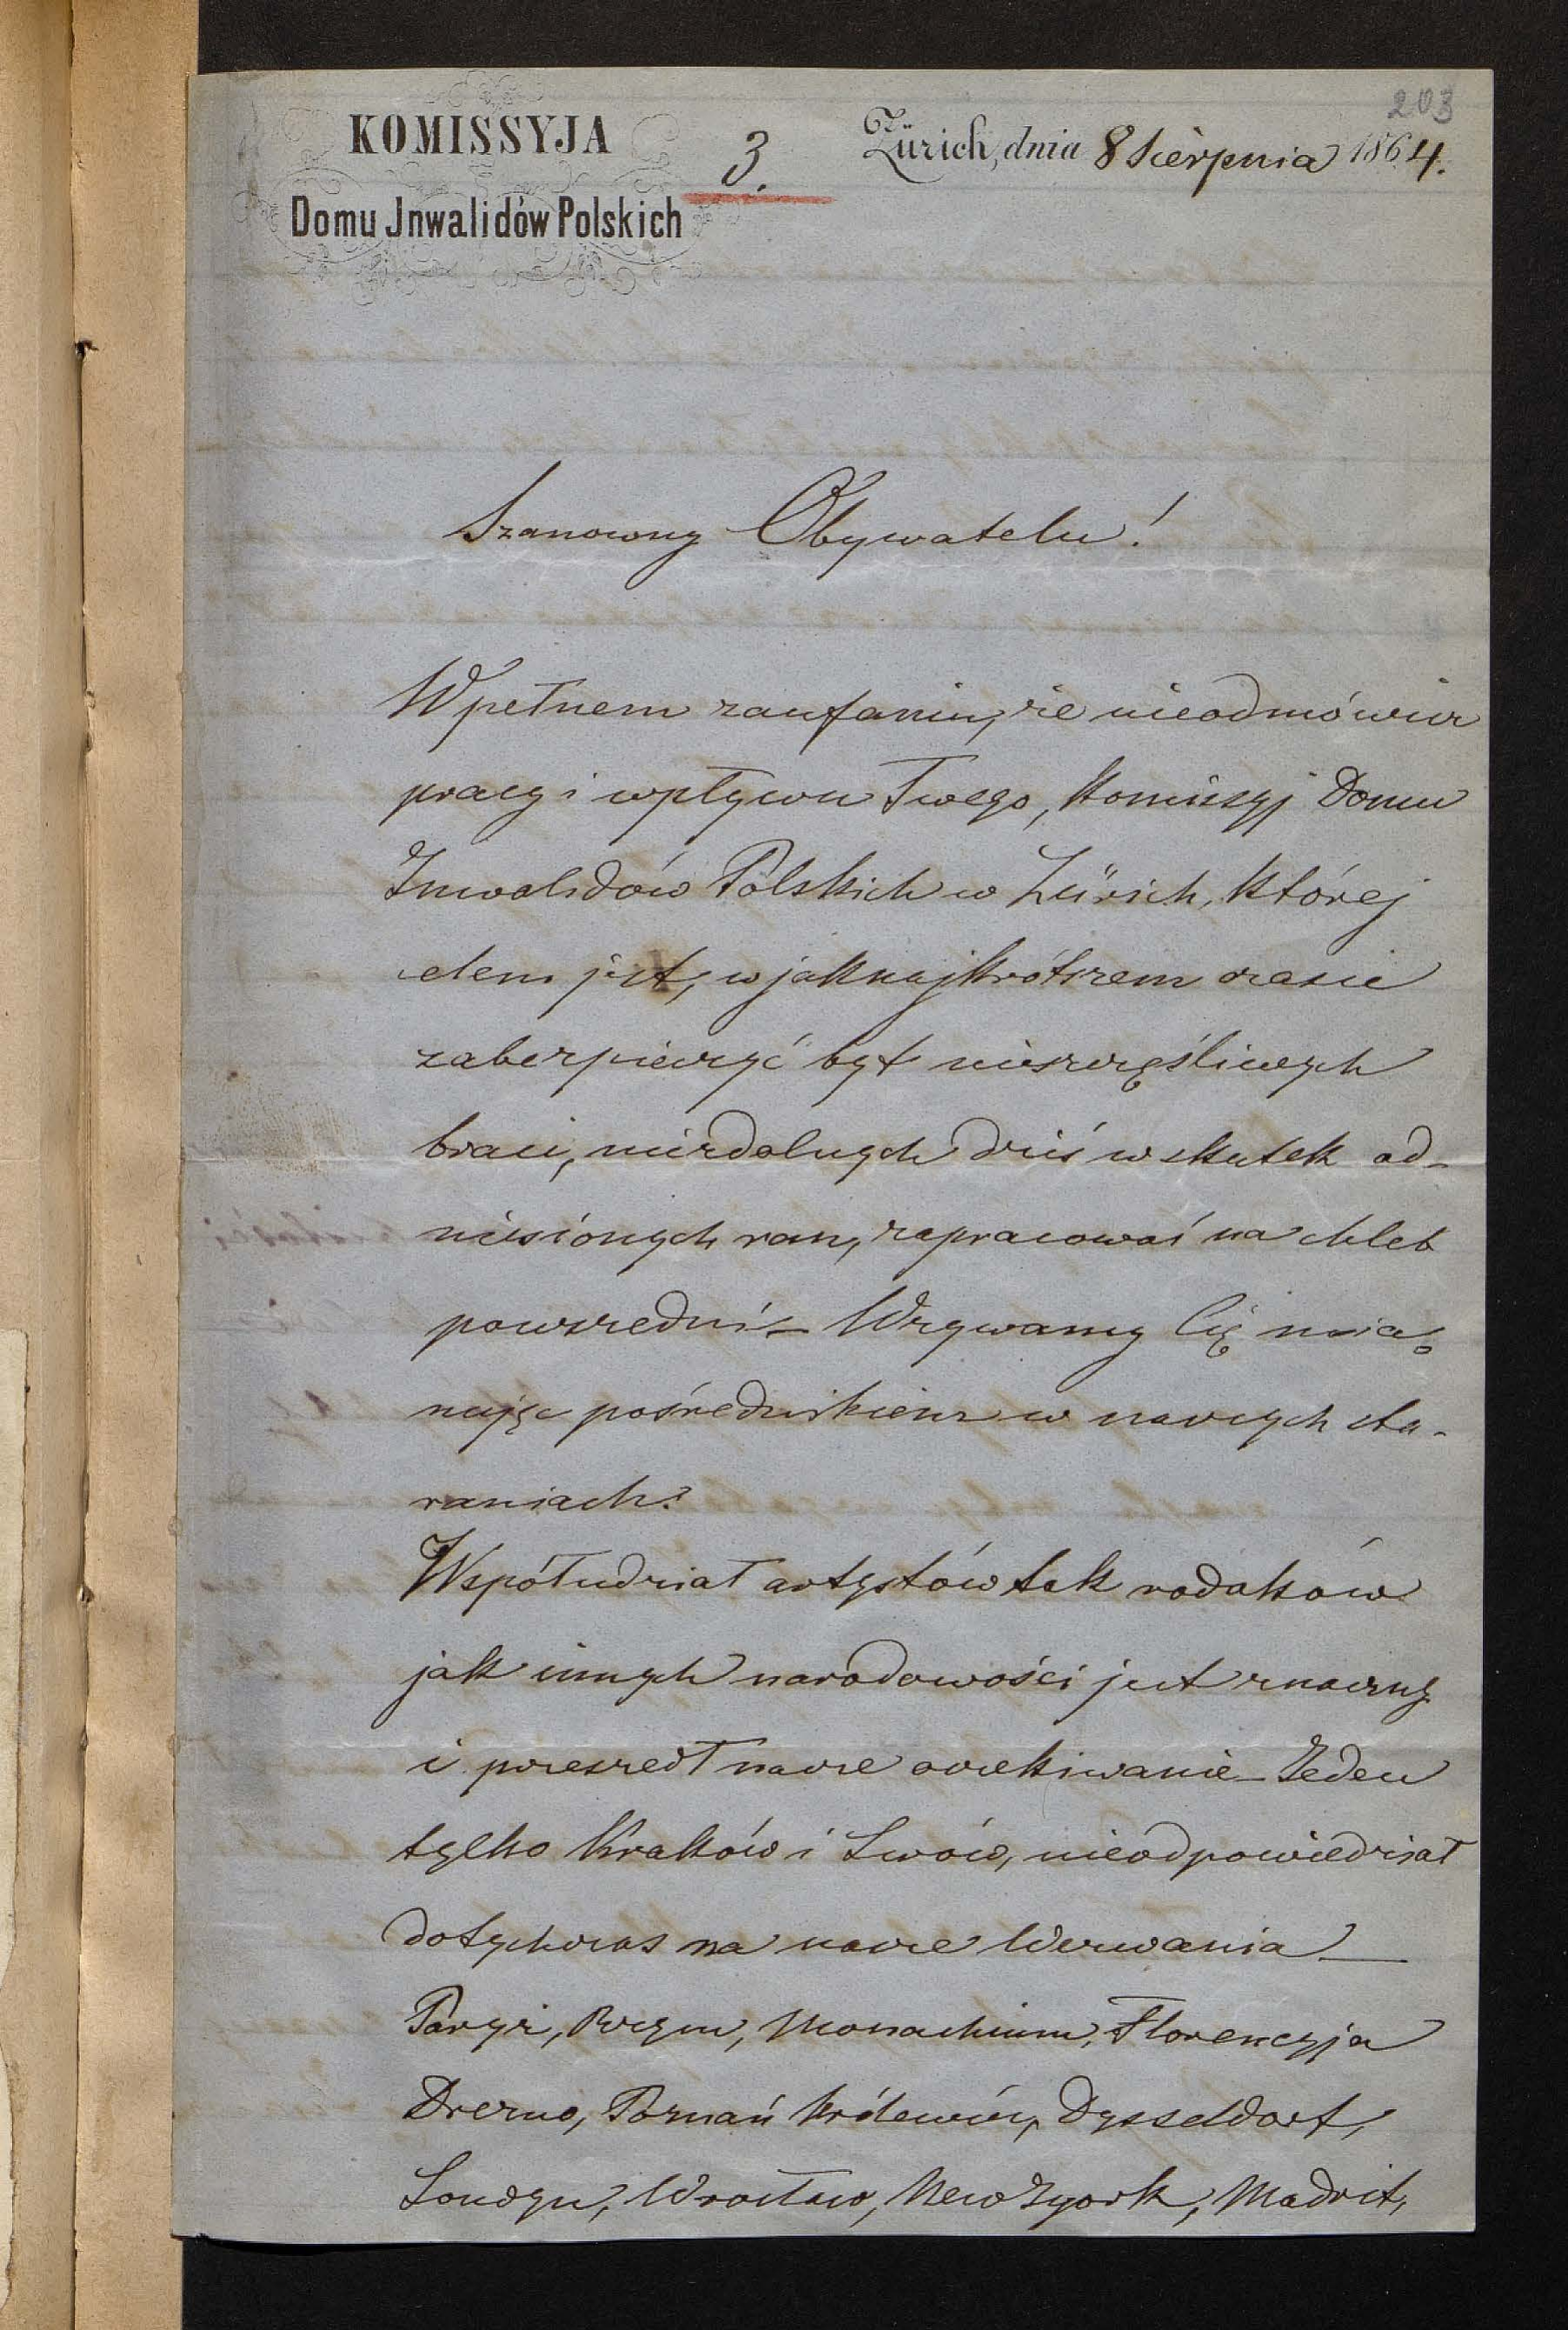 203
KOMISSYJA
Domu Jnwalidów Polskich
3.
Zürich, dnia 8 Sierpnia 1864.
Szanowny Obywatelu!
W pełnem zaufaniu, że nieodmówisz
pracy i wpływu Twego, Komissyj Domu
Inwalidów Polskich w Zürich, której
celem jest, w jaknajkrótszem czasie
zabezpieczyć byt nieszczęśliwych
braci, niezdolnych dziś w skutek od-
niesionych ran, zapracować na chleb
powszedni – Wzywamy Cię mia-
nując pośrednikiem w naszych sta-
raniach.
Współudział artystów tak rodaków
jak innych narodowości jest znaczny
i przeszedł nasze oczekiwanie – Jeden
tylko Kraków i Lwów, nieodpowiedział
dotychczas na nasze Wezwania –
Paryż, Rzym, Monachium, Florencyja
Drezno, Poznań Królewiec, Dysseldorf,
Londyn, Wrocław, New Jyork, Madrit,